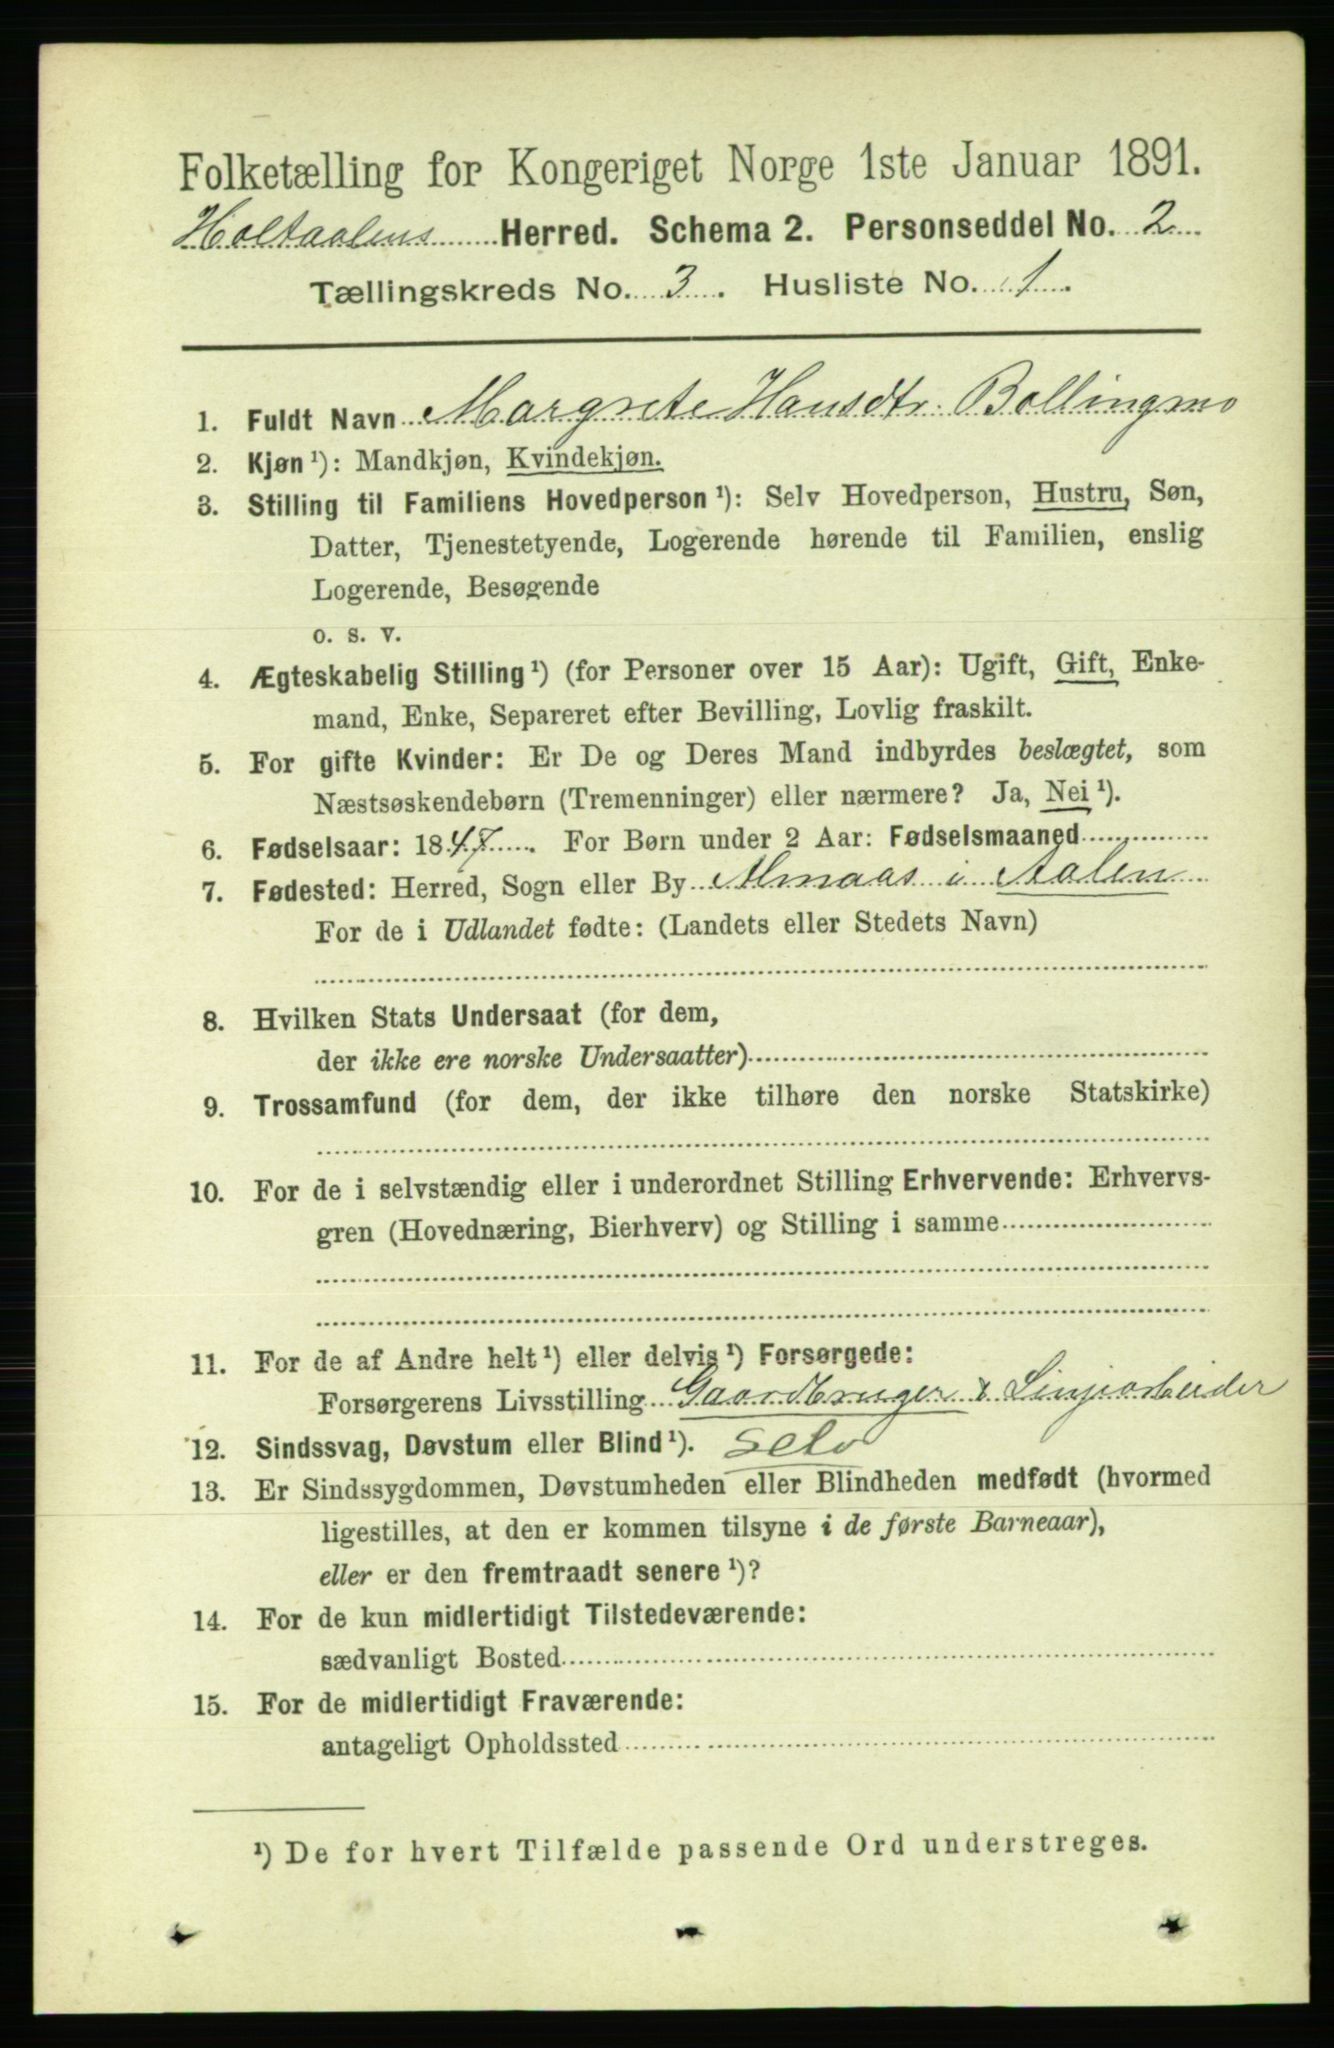 Folketælling for Kongeriget Norge 1ste Januar 1891.
Holtaalens Herred. Schema 2. Personseddel No. 2
Tællingskreds No. 3. Husliste No. 1.
1. Fuldt Navn Margrete Hansdtr. Bollingmo
2. Kjøn ¹): Mandkjøn, Kvindekjøn.
3. Stilling til Familiens Hovedperson ¹): Selv Hovedperson, Hustru, Søn,
Datter, Tjenestetyende, Logerende hørende til Familien, enslig
Logerende, Besøgende
o. s. v.
4. Ægteskabelig Stilling ¹) (for Personer over 15 Aar): Ugift, Gift, Enke-
mand, Enke, Separeret efter Bevilling, Lovlig fraskilt.
5. For gifte Kvinder: Er De og Deres Mand indbyrdes beslægtet, som
Næstsøskendebørn (Tremenninger) eller nærmere? Ja, Nei ¹).
6. Fødselsaar: 1847. For Børn under 2 Aar: Fødselsmaaned
7. Fødested: Herred, Sogn eller By Almaas i Aalen
For de i Udlandet fødte: (Landets eller Stedets Navn)
8. Hvilken Stats Undersaat (for dem,
der ikke ere norske Undersaatter)
9. Trossamfund (for dem, der ikke tilhøre den norske Statskirke)
10. For de i selvstændig eller i underordnet Stilling Erhvervende: Erhvervs-
gren (Hovednæring, Bierhverv) og Stilling i samme
11. For de af Andre helt ¹) eller delvis ¹) Forsørgede:
Forsørgerens Livsstilling Gaardbruger & Linjearbeider
12. Sindssvag, Døvstum eller Blind ¹). Selv
13. Er Sindssygdommen, Døvstumheden eller Blindheden medfødt (hvormed
ligestilles, at den er kommen tilsyne i de første Barneaar),
eller er den fremtraadt senere ¹)?
14. For de kun midlertidigt Tilstedeværende:
sædvanligt Bosted
15. For de midlertidigt Fraværende:
antageligt Opholdssted
¹) De for hvert Tilfælde passende Ord understreges.